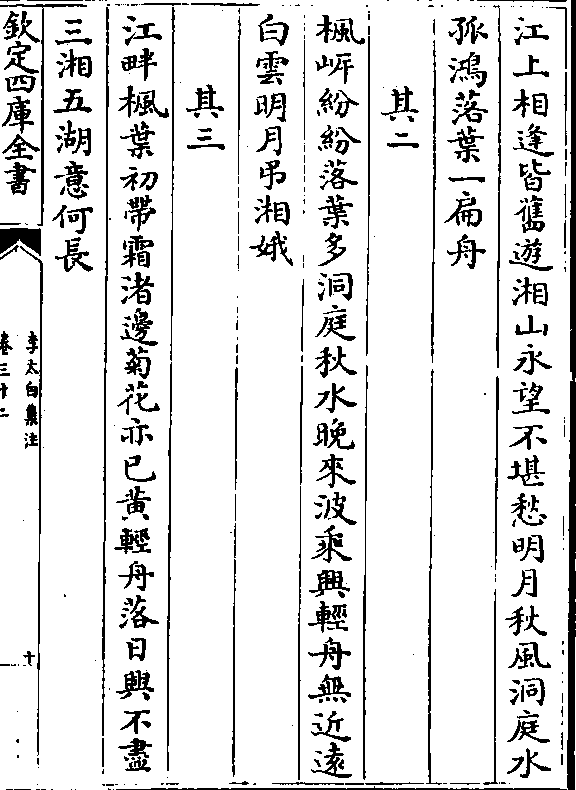 江上相逢皆舊遊湘山永望不堪愁明月秋風洞庭水
孤鴻落葉一扁舟
其二
楓岍紛紛落葉多洞庭秋水晚來波乘興輕舟無近遠
白雲明月弔湘娥
其三
江畔楓葉初帶霜渚邊菊花亦已黄輕舟落日興不盡
三湘五湖意何長
欽定四庫全書
李太白集注
卷三十二
十